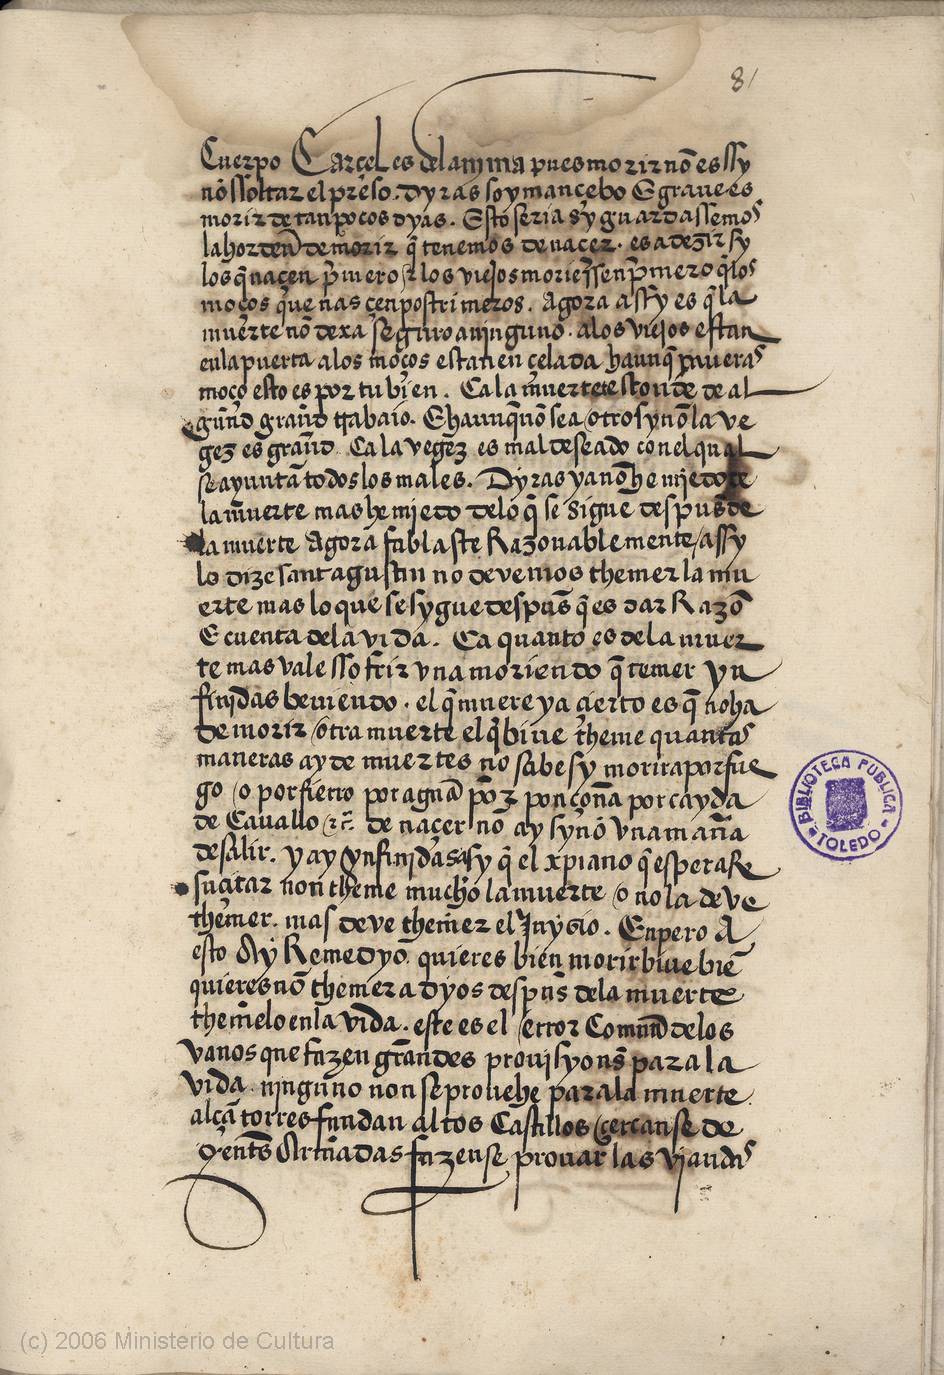 81
Cuerpo Carçel es del anima pues morir nõ es sy
nõ ssoltar el preso. dyras soy mancebo E graue es
morir de tan pocos dyas. Esto seria sy guardassemos
la horden de morir q̃ tenemos de naçer. es a dezir sy
los q̃ naçen p̃mero los viejos moriessen p̃mero q̃ los
moços que nasçen postrimeros. Agora assy es q̃ la
muerte nõ dexa seguro a ninguno. a los viejos esta en
en la puerta a los moços esta en çelada haunq̃ mueras
moço esto es por tu bien. Ca la muerte te esconde de al
gund grand trabajo. E haunq̃ nõ sea otro synõ la ve
gez es grand. Ca la vegez es mal deseado con el qual
se ayuntã todos los males. Dyras ya nõ he mjedo de
la muerte mas he mjedo de lo q̃ se sigue despues de
la muerte Agora fablaste Razonablemente assy
lo dize sant agustin no deuemos themer la mu
erte mas lo que se sygue despues q̃ es dar Razõ
E cuenta de la vida. Ca quanto es de la muer
te mas vale ssofrir vna moriendo q̃ temer yn
finidas beuiendo. el q̃ muere ya çierto es q̃ no ha
de morir otra muerte el q̃ biue theme quantas
maneras ay de muertes no sabe sy morira por fue
go o por fierro por agua por ponçoña por cayda
de Cauallo de naçer nõ ay synõ vna mañа
de salir. y ay ynfinidas assy q̃ el xpiano q̃ espera Re
suçitar non theme mucho la muerte o no la deve
themer. mas deve themer el Juyzio. Enpero A
esto Ay Remedyo. quieres bien morir biue biẽ
quieres nõ themer a dyos despues de la muerte
themelo en la vida. este es el error Comund de los
vanos que fazen grandes prouisyones para la
vida. ninguno non se prouehe para la muerte.
alçã torres fundan altos Castillos çercanse de
gentes Armadas fazense prouar las viandas
BIBLIOTECA PUBLICA
TOLEDO
(c) 2006 Ministerio de Cultura